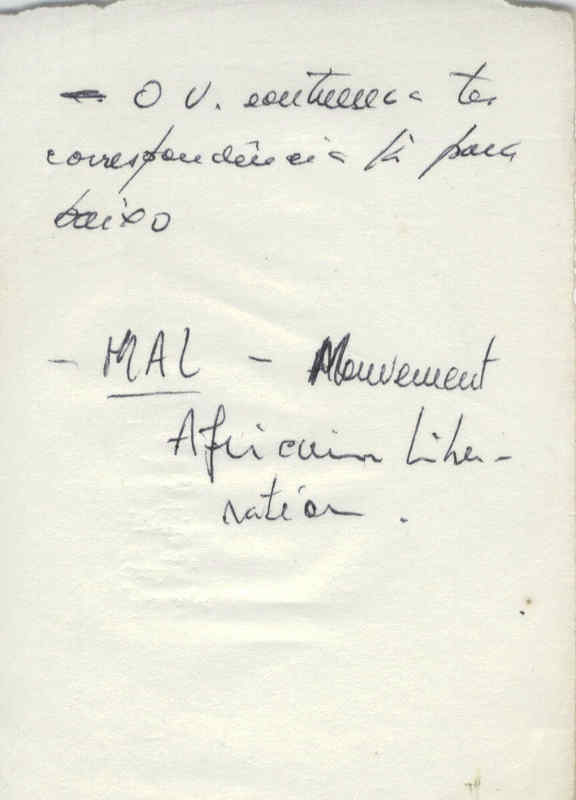 - O V. continua a ter
correspondência lá para
baixo
- MAL - Mouvement
Africain Libe-
ration.